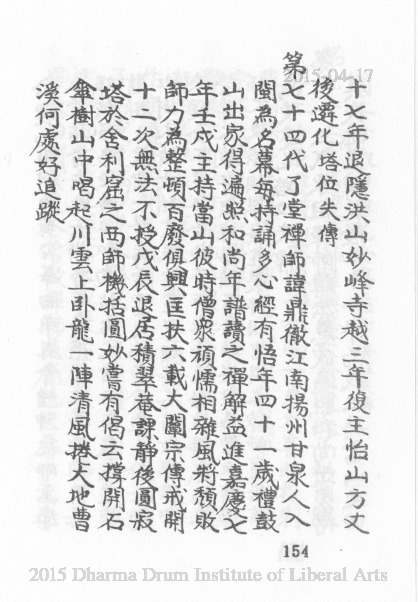 十七年退隱洪山妙峰寺越三年復主怡山方丈
後遷化塔位失傳
第七十四代了堂禪師諱鼎徹江南揚州甘泉人入
閩為名幕每持誦多心經有悟年四十一歲禮鼓
山出家得遍照和尚年譜讀之禪解益進嘉慶七
年壬戌主持當山彼時僧眾頑懦相雜風將頹敗
師力為整頓百廢俱興匡扶六載大闡宗傳戒開
十二次無法不授戊辰退居積翠菴課靜後圓寂
塔於舍利窟之西師機括圓妙嘗有偈云撐開石
傘樹山中喝起川雲上臥龍一陣清風捲大地曹
溪何處好追蹤
154
2015-04-17
2015 Dharma Drum Institute of Liberal Arts